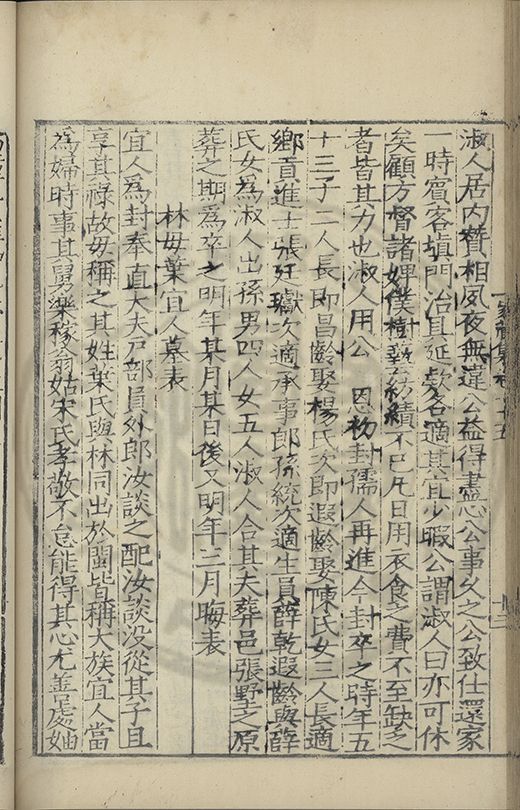 淑人居内贊相夙夜無違公益得盡心公事久之公致仕還家
一時賓客塡門治具延欵各適其宜少暇公謂淑人曰亦可休
矣顧方督諸婢僕樹蓺紡績不已凡日用衣食之費不至缺乏
者皆其力也淑人用公 恩初封孺人再進今封卒之時年五
十三子二人長即昌齡娶楊氏次即遐齡娶陳氏女三人長適
鄉貢進士張廷瓛次適承事郎孫統次適生員薛乾遐齡與薛
氏女爲淑人出孫男四人女五人淑人合其夫葬邑張野之原
葬之期爲卒之明年某月某日後又明年三月晦表
林母葉宜人墓表
宜人爲封奉直大夫戸部員外郎汝談之配汝談没從其子且
享其禄故母稱之其姓葉氏與林同出於閩皆稱大族宜人當
爲婦時事其舅樂稼翁姑宋氏孝敬不怠能得其心尤善處妯
家藏集 十五